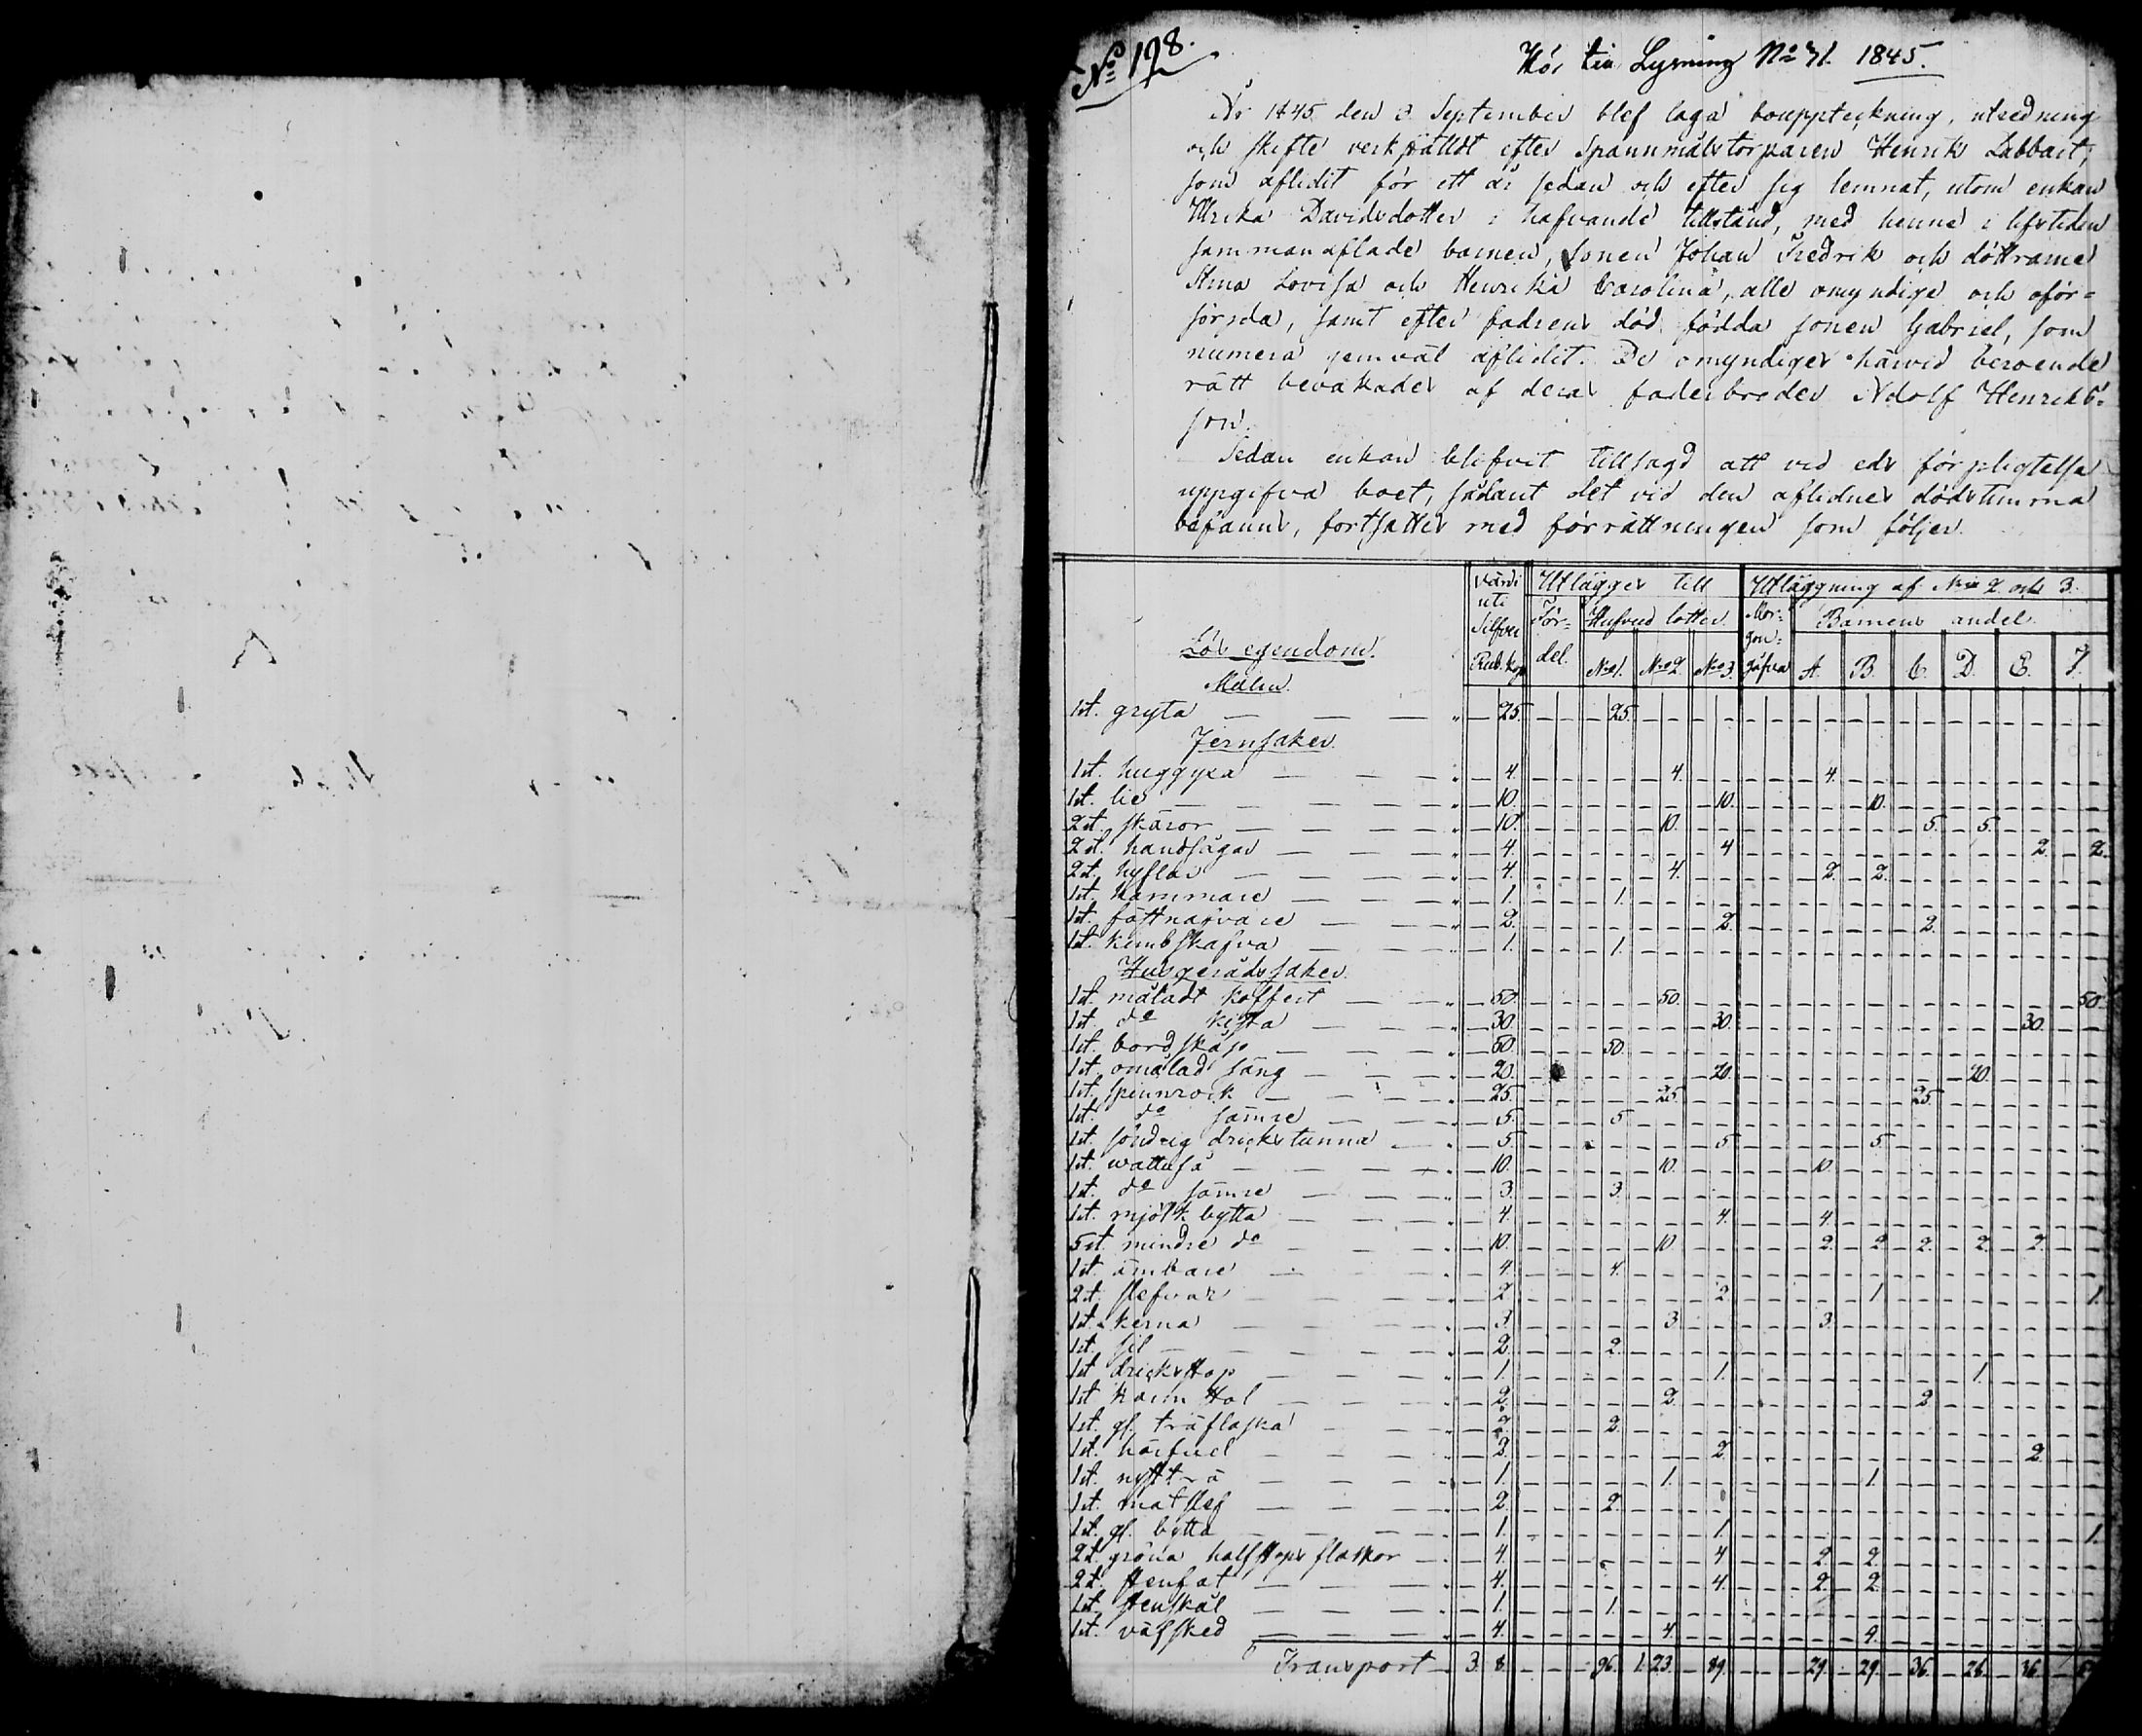 No 198.
Hör till Lysning No 71. 1845.
År 1845 den 3 September blef laga bouppteckning, utredning
och skifte verkställdt efter Spannmålstorparen Henrik Labbart,
som aflidit för ett år sedan och efter sig lemnat, utom enkan
Ulrika Davidsdotter i hafvande tillstånd, med henne i lifstiden
sammanaflade barnen, sonen Johan Fredrik och döttrarne
Stina Lovisa och Henrika Carolina, alla omyndige och oför=
sörjda, samt efter fadrens död födda sonen Gabriel, som
numera jemväl aflidit. De omyndiges härvid beroende
rätt bevakades af deras faderbroder Adolf Henriks=
son.
Sedan enkan blifvit tillsagd att vid eds förpligtelse
uppgifva boet, sådant det vid den aflidnes dödstimma
befanns, fortsattes med förrättningen som följer.
Värde uti Silfver Rub. kop. Utlägges till Utläggning af No 2 och 3.
För= del. Hufvud lotter. Mor= gon= gåfva Barnens andel.
Lös egendom. No 1. No 2. No 3. A. B. C. D. E. F.
Malm.
1 st. gryta 25. 25.
Jernsaker.
1 st. huggyxa 4. 4. 4.
1 st. lie 10. 10. 10.
2 st. skäror 10. 10. 5. 5.
2 st. handsågar 4. 4 2. 2.
2 st. hyflar 4. 4. 2. 2.
1 st. hammare 1. 1.
1 st. fottnafvare 2. 2. 2.
1 st. kimbskafva 1. 1.
Husgerådssaker.
1 st. måladt koffert 50. 50. 50.
1 st. do kista 30. 30. 30.
1 st. bordskåp 50. 50.
1 st. omålad säng 20. 20. 20.
1 st. spinnrock 25. 25. 25.
1 st. do sämre 5. 5
1 st. söndrig dricks tunna 5. 5 5.
1 st. vattuså 10. 10. 10.
1 st. do sämre 3. 3.
1 st. mjölk bytta 4. 4. 4.
5 st. mindre do 10. 10. 2. 2 2. 2. 2.
1 st. ämbare 4. 4.
2 st. slefvar 2. 2. 1 1.
1 st. kerna 3. 3 3.
1 st. sil 2. 2.
1 st. dricksstop 1. 1. 1.
1 st. karm stol 2. 2. 2
1 st. gl. träflaska 2. 2.
1 st. härfvel 2. 2. 2.
1 st. nystträ 1. 1. 1.
1 st. matslef 2. 2.
1 st. gl. bytta 1. 1. 1.
2 st. gröna halfstops flaskor 4. 4 2. 2.
2 st. stenfat 4. 4. 2. 2.
1 st. stenskål 1. 1.
1 st. våfsked 4. 4. 4.
Transport 3. 8. 96. 1. 23. 89. 29. 29. 36. 28. 36.